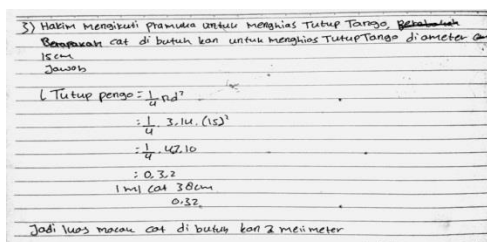 3) Hakim mengikuti pramuka untuk menghias Tutup Tango,
Berapakah cat di butuh kan untuk menghias Tutup Tango diameter
15 cm
Jawab
L Tutup pengo = 1/4 πd²
: 1/4 . 3,14. (15)²
: 1/4 . 47,10
: 0,3,2
1 ml cat 38cm
0,32
Jadi luas macau cat di butuh kan 2 melimeter